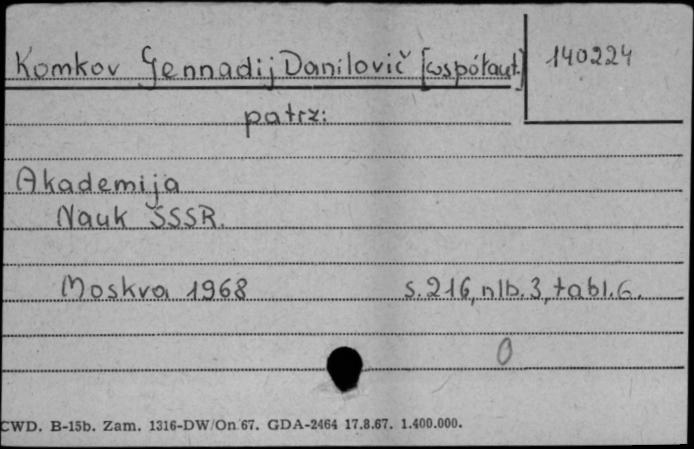 Komkov Gennadij Danilovič [współaut.] 140224
patrz:
Akademija
Nauk SSSR.
Moskva 1968 s. 216, nlb. 3, tabl. 6.
0
CWD. B-15b. Zam. 1316-DW/On 67. GDA-2464 17.8.67. 1.400.000.